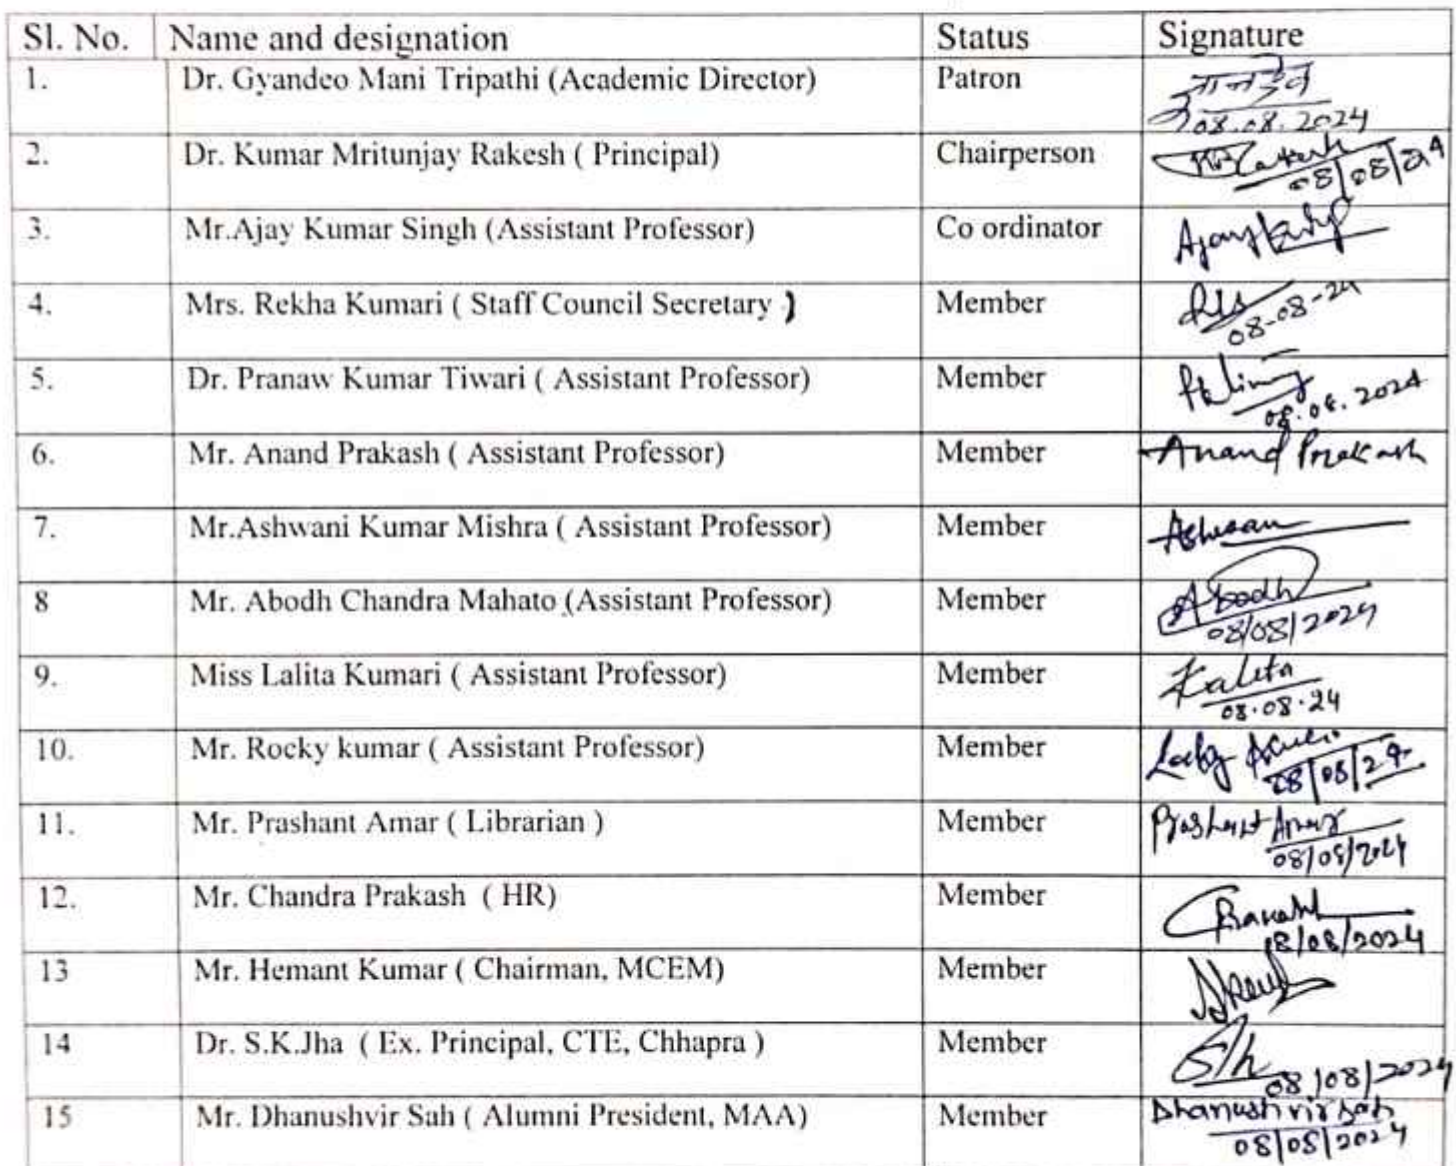 Sl. No. Name and designation Status Signature
1. Dr. Gyandeo Mani Tripathi (Academic Director) Patron ज्ञानदेव
08.08.2024
2. Dr. Kumar Mritunjay Rakesh ( Principal) Chairperson
08/08/24
3. Mr.Ajay Kumar Singh (Assistant Professor) Co ordinator Ajay
4. Mrs. Rekha Kumari ( Staff Council Secretary ) Member
08-08-24
5. Dr. Pranaw Kumar Tiwari ( Assistant Professor) Member
08.08.2024
6. Mr. Anand Prakash ( Assistant Professor) Member Anand Prakash
7. Mr.Ashwani Kumar Mishra ( Assistant Professor) Member
8 Mr. Abodh Chandra Mahato (Assistant Professor) Member Abodh
08/08/2024
9. Miss Lalita Kumari ( Assistant Professor) Member Lalita
08.08.24
10. Mr. Rocky kumar ( Assistant Professor) Member
08/08/24
11. Mr. Prashant Amar ( Librarian ) Member Prashant Amar
08/08/2024
12. Mr. Chandra Prakash ( HR) Member CPrakash
08/08/2024
13 Mr. Hemant Kumar ( Chairman, MCEM) Member
14 Dr. S.K.Jha ( Ex. Principal, CTE, Chhapra ) Member
08/08/2024
15 Mr. Dhanushvir Sah ( Alumni President, MAA) Member Dhanushvir Sah
08/08/2024